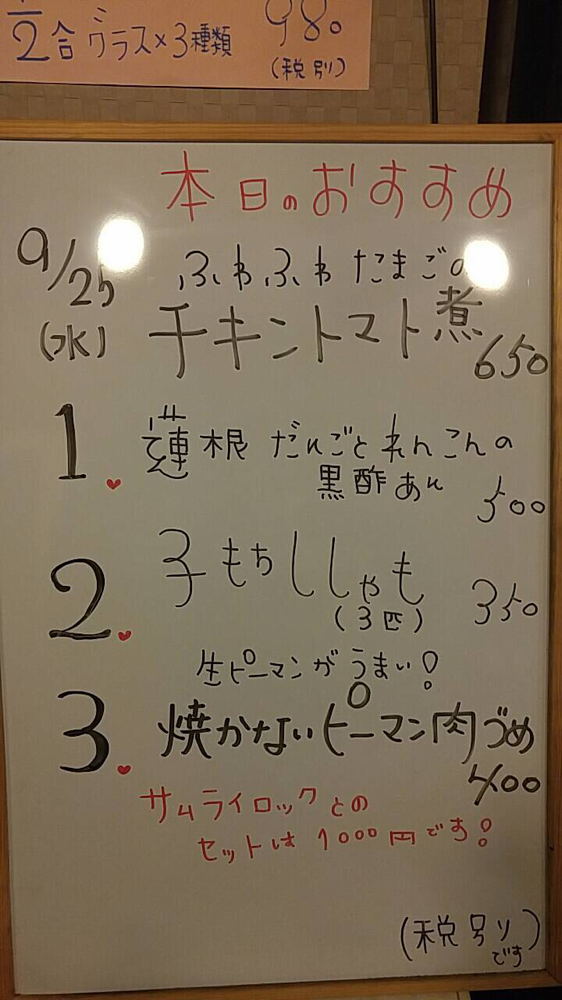 1/2合グラス×3種類 980
(税別)
本日のおすすめ
9/25
(水)
ふわふわたまごの
チキントマト煮 650
1. 蓮根だんごとれんこんの
黒酢あん 500
2. 子もちししゃも
(3匹) 350
生ピーマンがうまい!
3. 焼かないピーマン肉づめ
400
サムライロックとの
セットは1000円です!
(税別り)
です